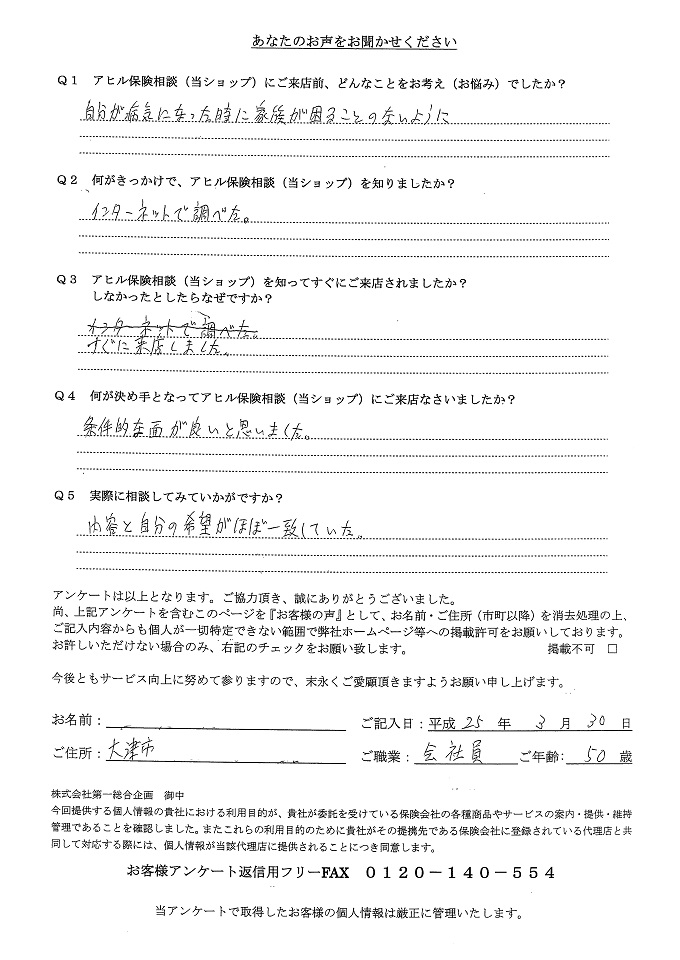 あなたのお声をお聞かせください
Q1 アヒル保険相談（当ショップ）にご来店前、どんなことをお考え（お悩み）でしたか？
自分が病気になった時に家族が困ることのないように
Q2 何がきっかけで、アヒル保険相談（当ショップ）を知りましたか？
インターネットで調べた。
Q3 アヒル保険相談（当ショップ）を知ってすぐにご来店されましたか？
しなかったとしたらなぜですか？
インターネットで調べた。
すぐに来店しました。
Q4 何が決め手となってアヒル保険相談（当ショップ）にご来店なさいましたか？
条件的な面が良いと思いました。
Q5 実際に相談してみていかがですか？
内容と自分の希望がほぼ一致していた。
アンケートは以上となります。ご協力頂き、誠にありがとうございました。
尚、上記アンケートを含むこのページを『お客様の声』として、お名前・ご住所（市町以降）を消去処理の上、
ご記入内容からも個人が一切特定できない範囲で弊社ホームページ等への掲載許可をお願いしております。
お許しいただけない場合のみ、右記のチェックをお願い致します。 掲載不可 □
今後ともサービス向上に努めて参りますので、末永くご愛顧頂きますようお願い申し上げます。
お名前： ご記入日：平成 25 年 3 月 30 日
ご住所：大津市 ご職業：会社員 ご年齢：50 歳
株式会社第一総合企画 御中
今回提供する個人情報の貴社における利用目的が、貴社が委託を受けている保険会社の各種商品やサービスの案内・提供・維持
管理であることを確認しました。またこれらの利用目的のために貴社がその提携先である保険会社に登録されている代理店と共
同して対応する際には、個人情報が当該代理店に提供されることにつき同意します。
お客様アンケート返信用フリーFAX 0120－140－554
当アンケートで取得したお客様の個人情報は厳正に管理いたします。